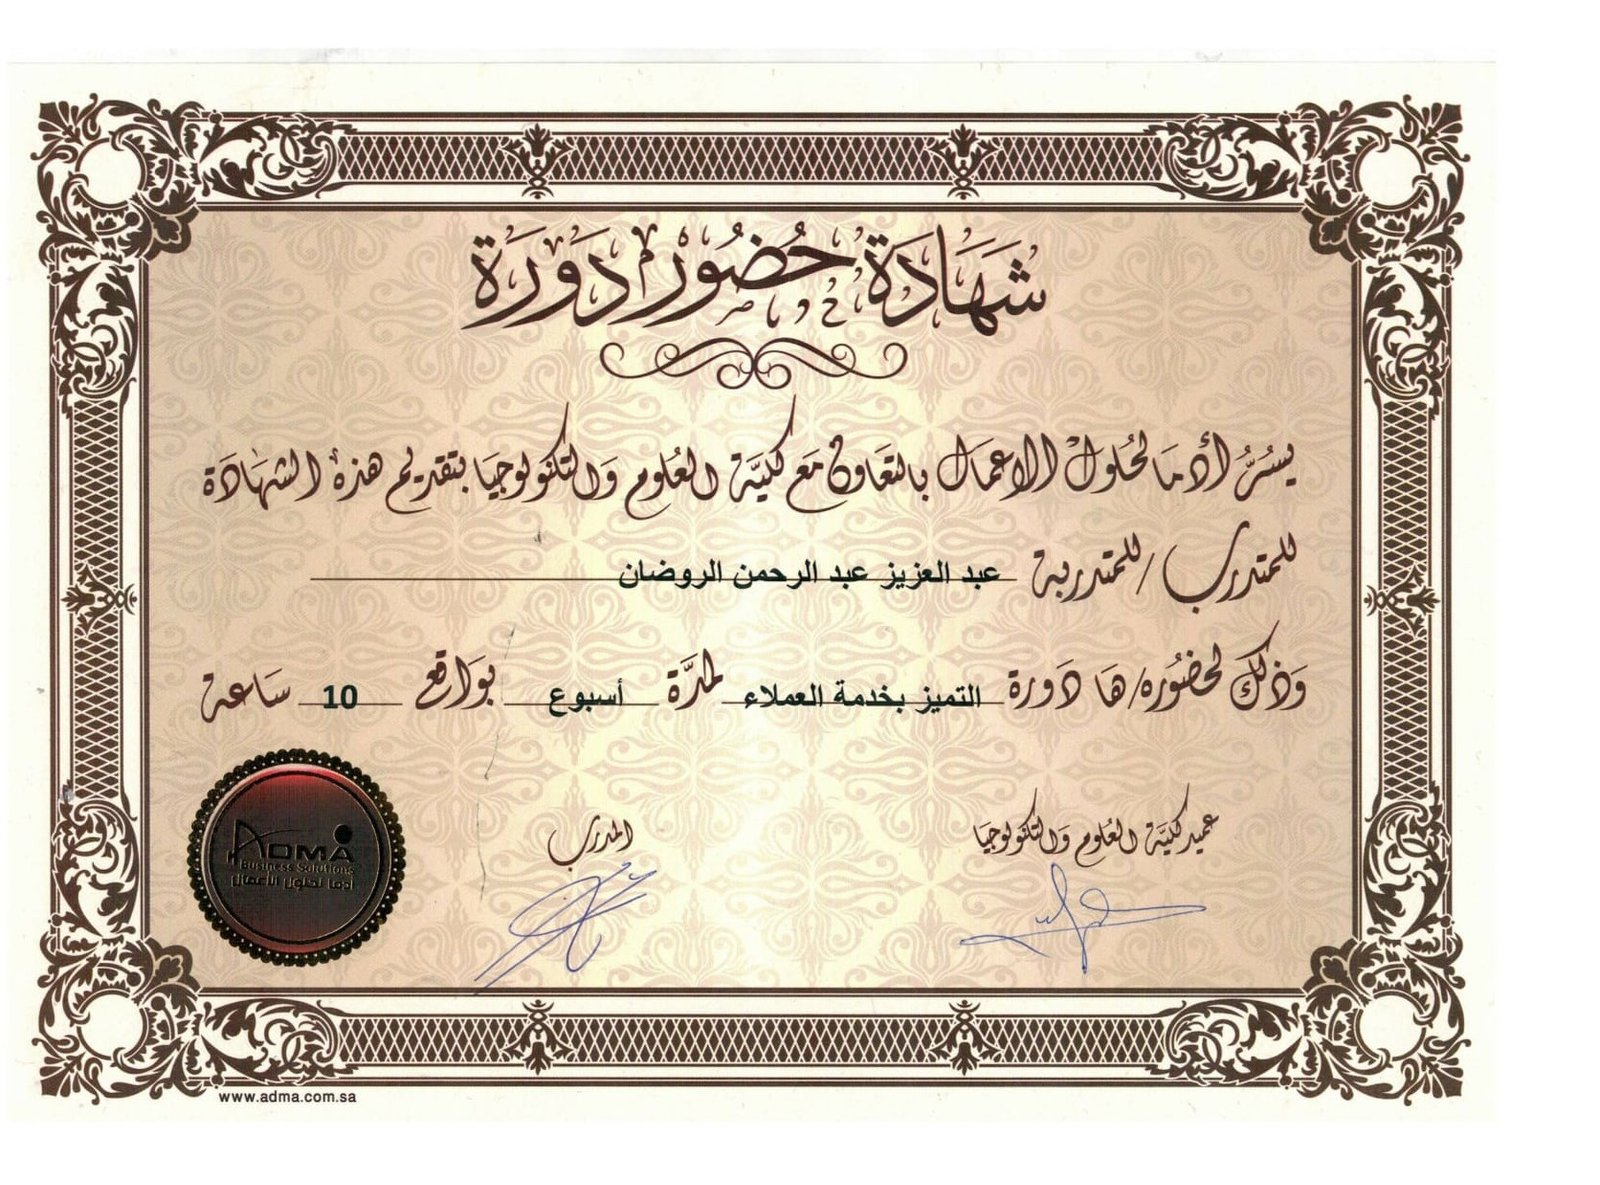 شَهَادَة حُضُور دَوَرَة
يسُرُّ أدمَا لحُلول الاعمَال بالتعَاون مَع كليَّة العُلوم وَالتكنولوجيَا بتقديم هذه الشهَادَة
للمتدرب/للمتدربة عبد العزيز عبد الرحمن الروضان
وَذلك لحضُوره/هَا دَورة التميز بخدمة العملاء لمدَّة أسبوع بوَاقع 10 سَاعة
عميد كليَّة العُلوم وَالتكنولوجيَا
المدرب
ADMA
Business Solutions
أدما لحلول الأعمال
www.adma.com.sa